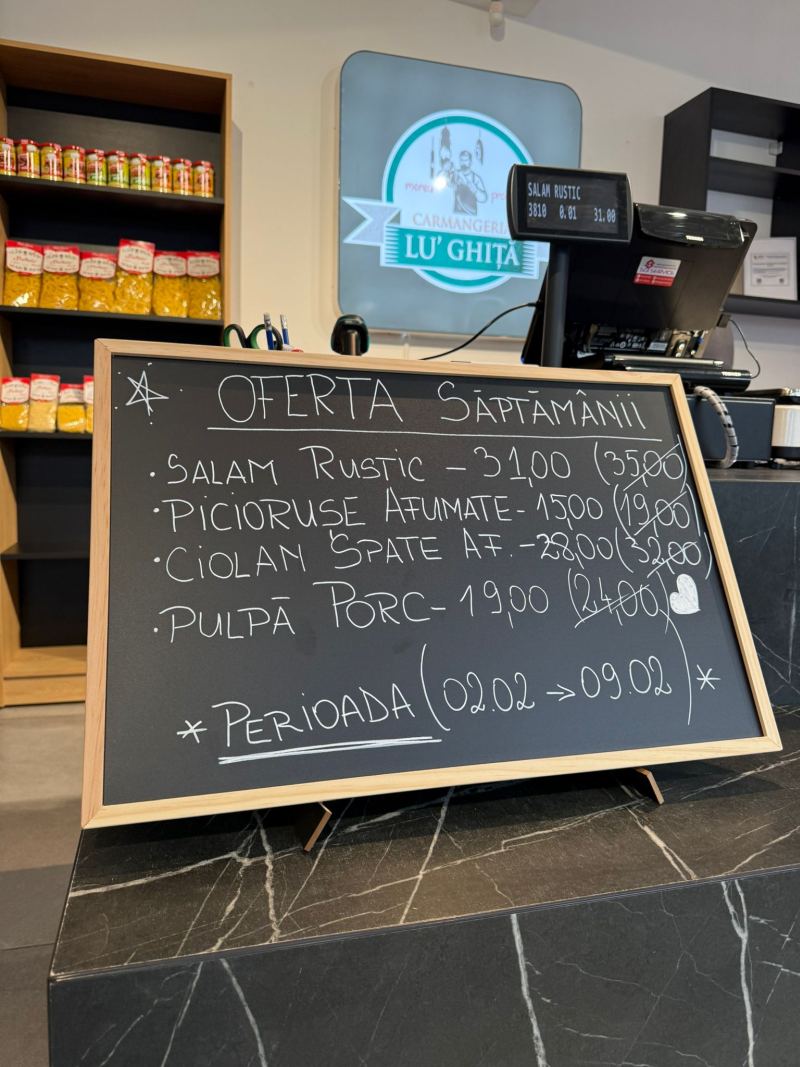 CARMANGERIA
LU' GHIȚĂ
SALAM RUSTIC
3810 0.01 31.00
OFERTA SĂPTĂMÂNII
· SALAM RUSTIC - 31,00 (35,00)
· PICIORUȘE AFUMATE - 15,00 (19,00)
· CIOLAN SPATE AF. - 28,00 (32,00)
· PULPĂ PORC - 19,00 (24,00)
* PERIOADA (02.02 → 09.02) *